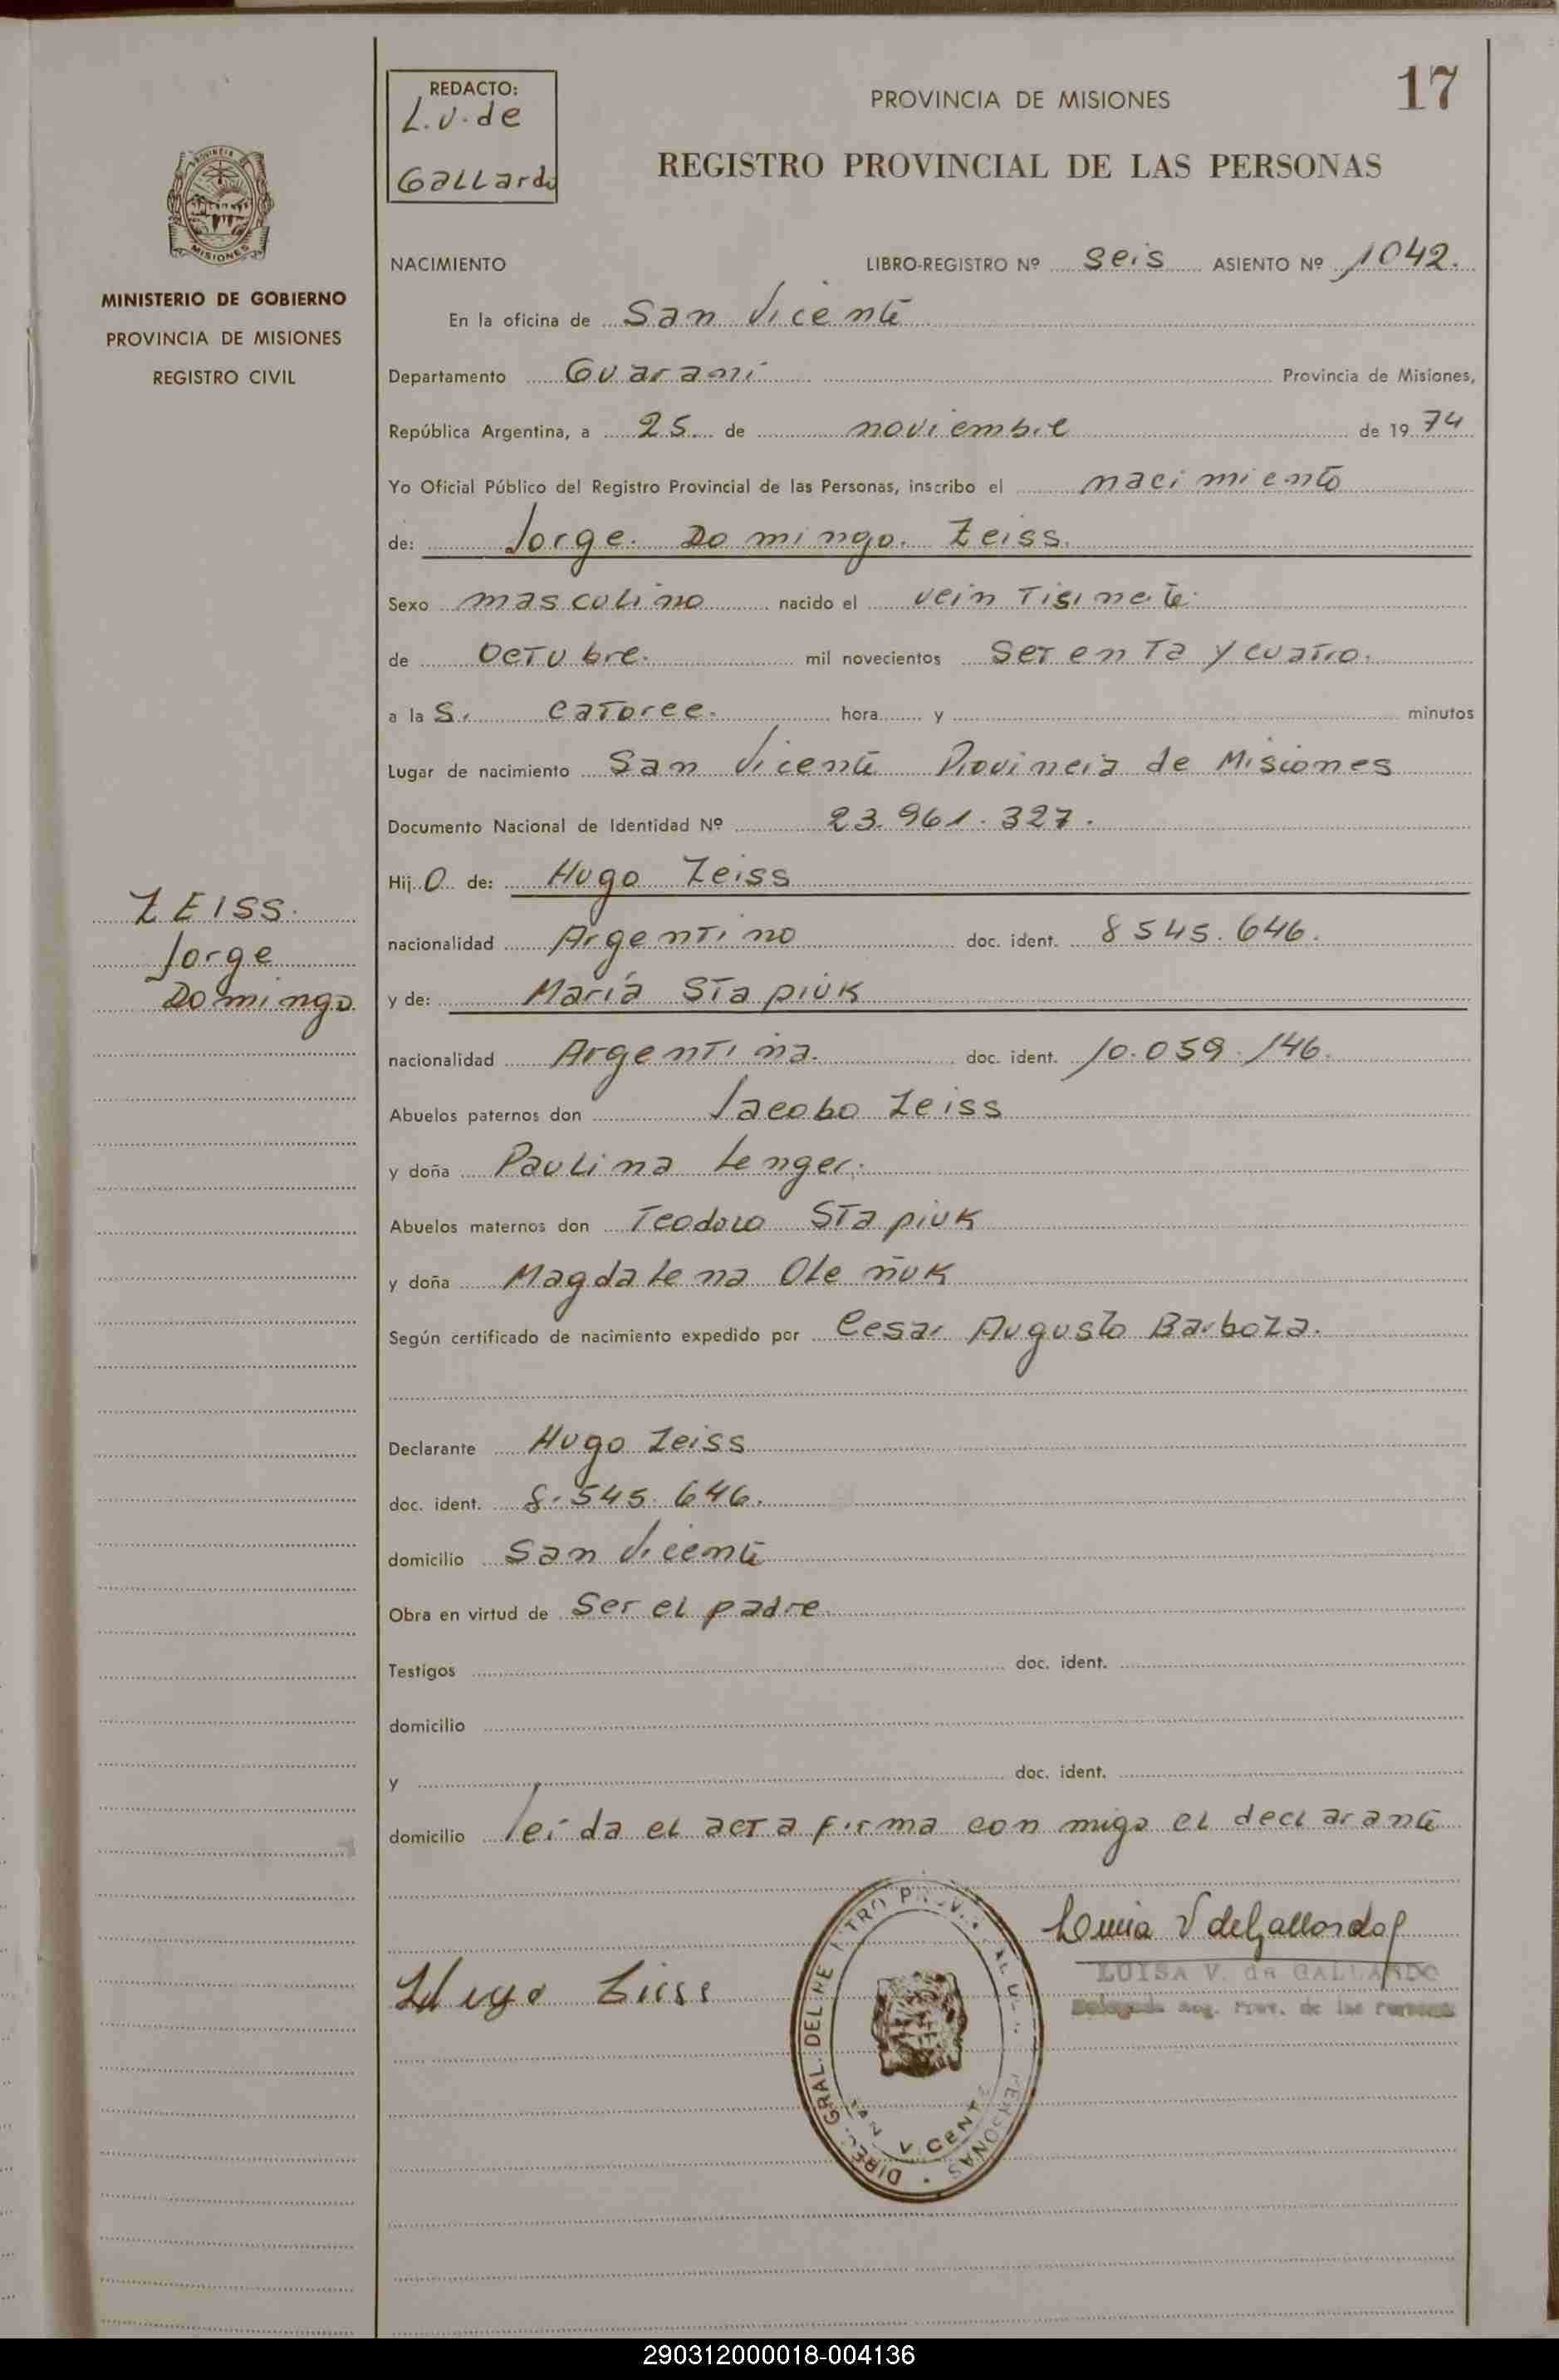 REDACTO:
L.V. de
Gallardo
PROVINCIA DE MISIONES
17
REGISTRO PROVINCIAL DE LAS PERSONAS
MISIONES
MINISTERIO DE GOBIERNO
PROVINCIA DE MISIONES
REGISTRO CIVIL
NACIMIENTO LIBRO-REGISTRO Nº seis ASIENTO Nº 1042.
En la oficina de San Vicente
Departamento Guaraní Provincia de Misiones,
República Argentina, a 25 de noviembre de 1974
Yo Oficial Público del Registro Provincial de las Personas, inscribo el nacimiento
de: Jorge Domingo Zeiss.
Sexo masculino nacido el
de octubre. mil novecientos setenta y cuatro.
a las. catorce. hora y minutos
Lugar de nacimiento San Vicente Provincia de Misiones
Documento Nacional de Identidad Nº 23.961.327.
Hijo de: Hugo Zeiss
nacionalidad Argentino doc. ident. 8545.646.
y de: María Stapiuk
nacionalidad Argentina. doc. ident. 10.059.146.
Abuelos paternos don Jacobo Zeiss
y doña Paulina Lenger.
Abuelos maternos don Teodoro Stapiuk
y doña Magdalena Oleñuk
Según certificado de nacimiento expedido por Cesar Augusto Barboza.
Declarante Hugo Zeiss
doc. ident. 8.545.646.
domicilio San Vicente
Obra en virtud de ser el padre.
Testigos doc. ident.
domicilio
y doc. ident.
domicilio leída el acta firma conmigo el declarante
ZEISS.
Jorge
Domingo
Hugo
LUISA V. de GALLARDO
Delegada Reg. Prov. de las Personas
DIREC. GRAL. DEL REGISTRO PROVINCIAL DE LAS PERSONAS
SAN VICENTE
290312000018-004136